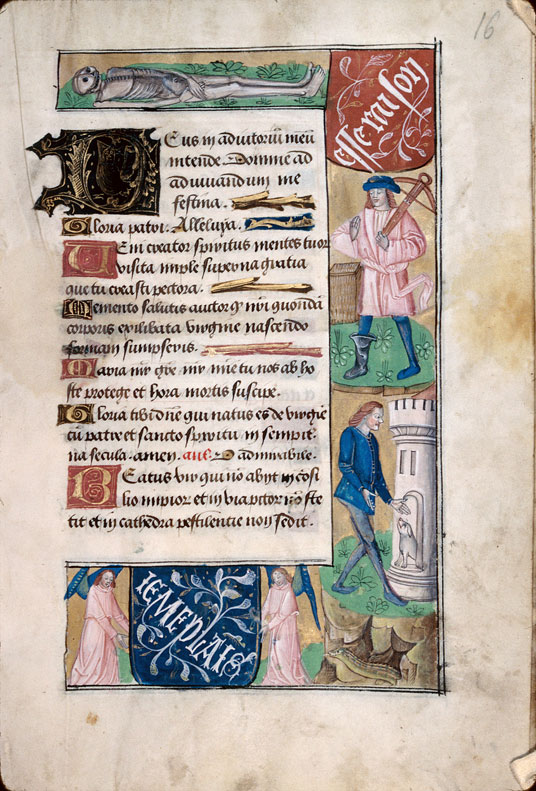 16
Deus in adiutoriū meū
intende. Domine ad
adiuuandum me
festina.
Gloria patri. Alleluya.
Veni creator spiritus mentes tuor
visita imple superna gratia
que tu creasti pectora.
Memento salutis autor q nr̄i quondā
corporis ex illibata virgine nascendo
formam sumpseris.
Maria mr̄ gr̄e mr̄ mīe tu nos ab ho
ste protege et hora mortis suscipe.
Gloria tibi dn̄e qui natus es de virgīe
cū patre et sancto spiritu in sempit
na secula. amen. O admirabile.
Beatus vir qui nō abyt in cōsi
lio impior et in via pctor nō ste
tit et in cathedra pestilencie non sedit.
IEMEPLAIS